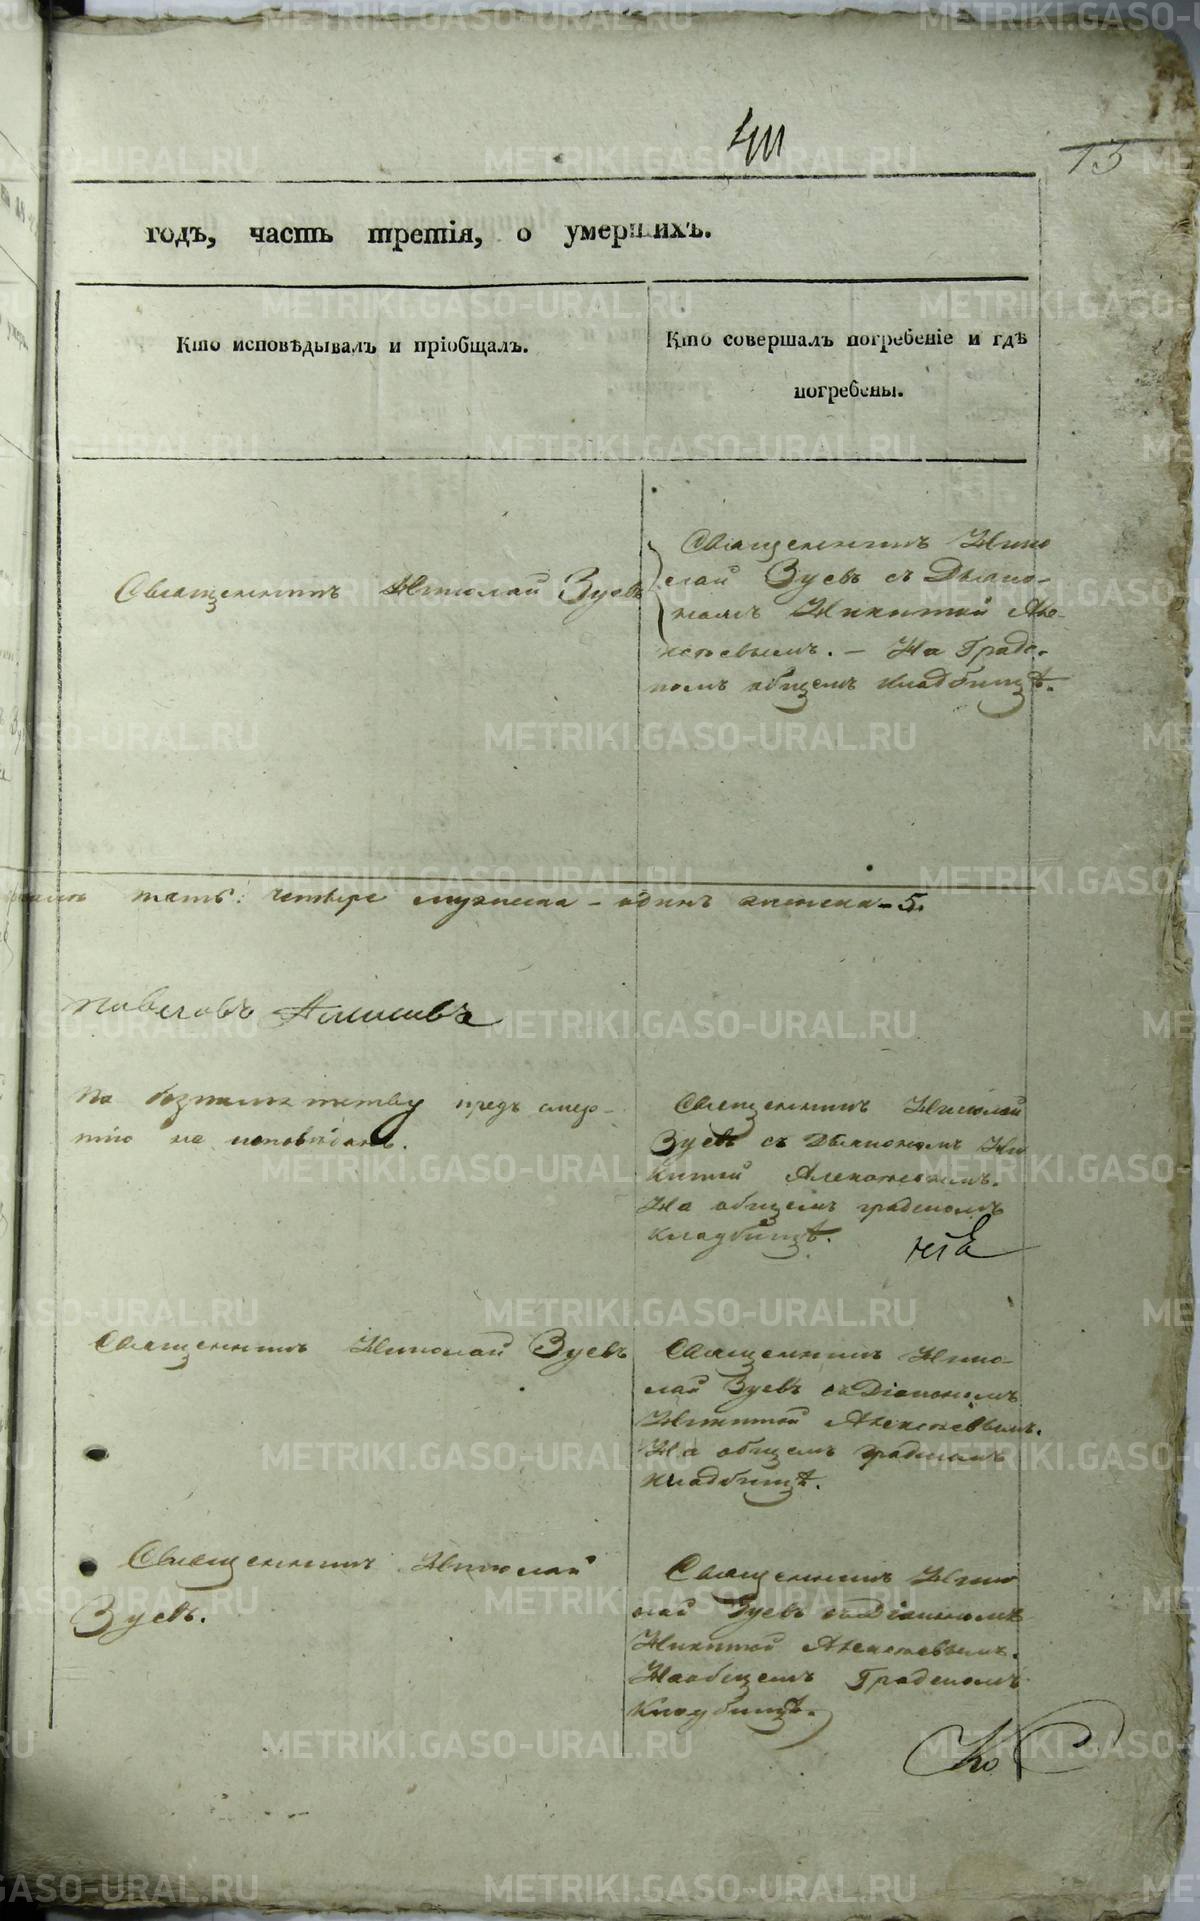 13
годъ, часть третія, о умершихъ.
Кто исповѣдывалъ и пріобщалъ.
Кто совершалъ погребеніе и гдѣ
погребены.
Священникъ Николай Зуевъ
Священникъ Нико
лай Зуевъ съ Дьяко-
номъ Никитой Але-
ксѣевымъ. – На Градс-
комъ общемъ кладбищѣ.
пять: четыре мужеска – одинъ женска – 5.
По
предъ смер-
тію не исповѣданъ.
Священникъ Николай
Зуевъ съ Дьякономъ Ни
китой Алексѣевымъ.
На общемъ градскомъ
кладбищѣ.
Священникъ Николай Зуевъ
Священникъ Нико-
лай Зуевъ съ Діакономъ
Никитой Алексѣевымъ.
На общемъ градскомъ
кладбищѣ.
Священникъ Николай
Зуевъ.
Священникъ Нико
лай Зуевъ съ Діакономъ
Никитой Алексѣевымъ.
На общемъ Градскомъ
кладбищѣ.
METRIKI.GASO-URAL.RU